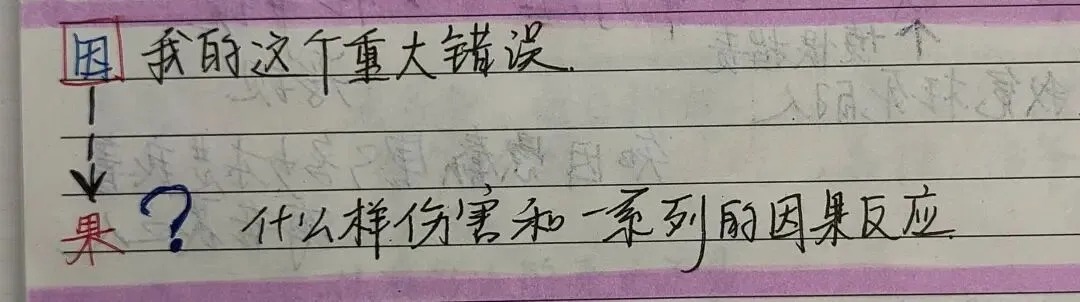 因 我的这个重大错误.
果 ? 什么样伤害和一系列的因果反应.